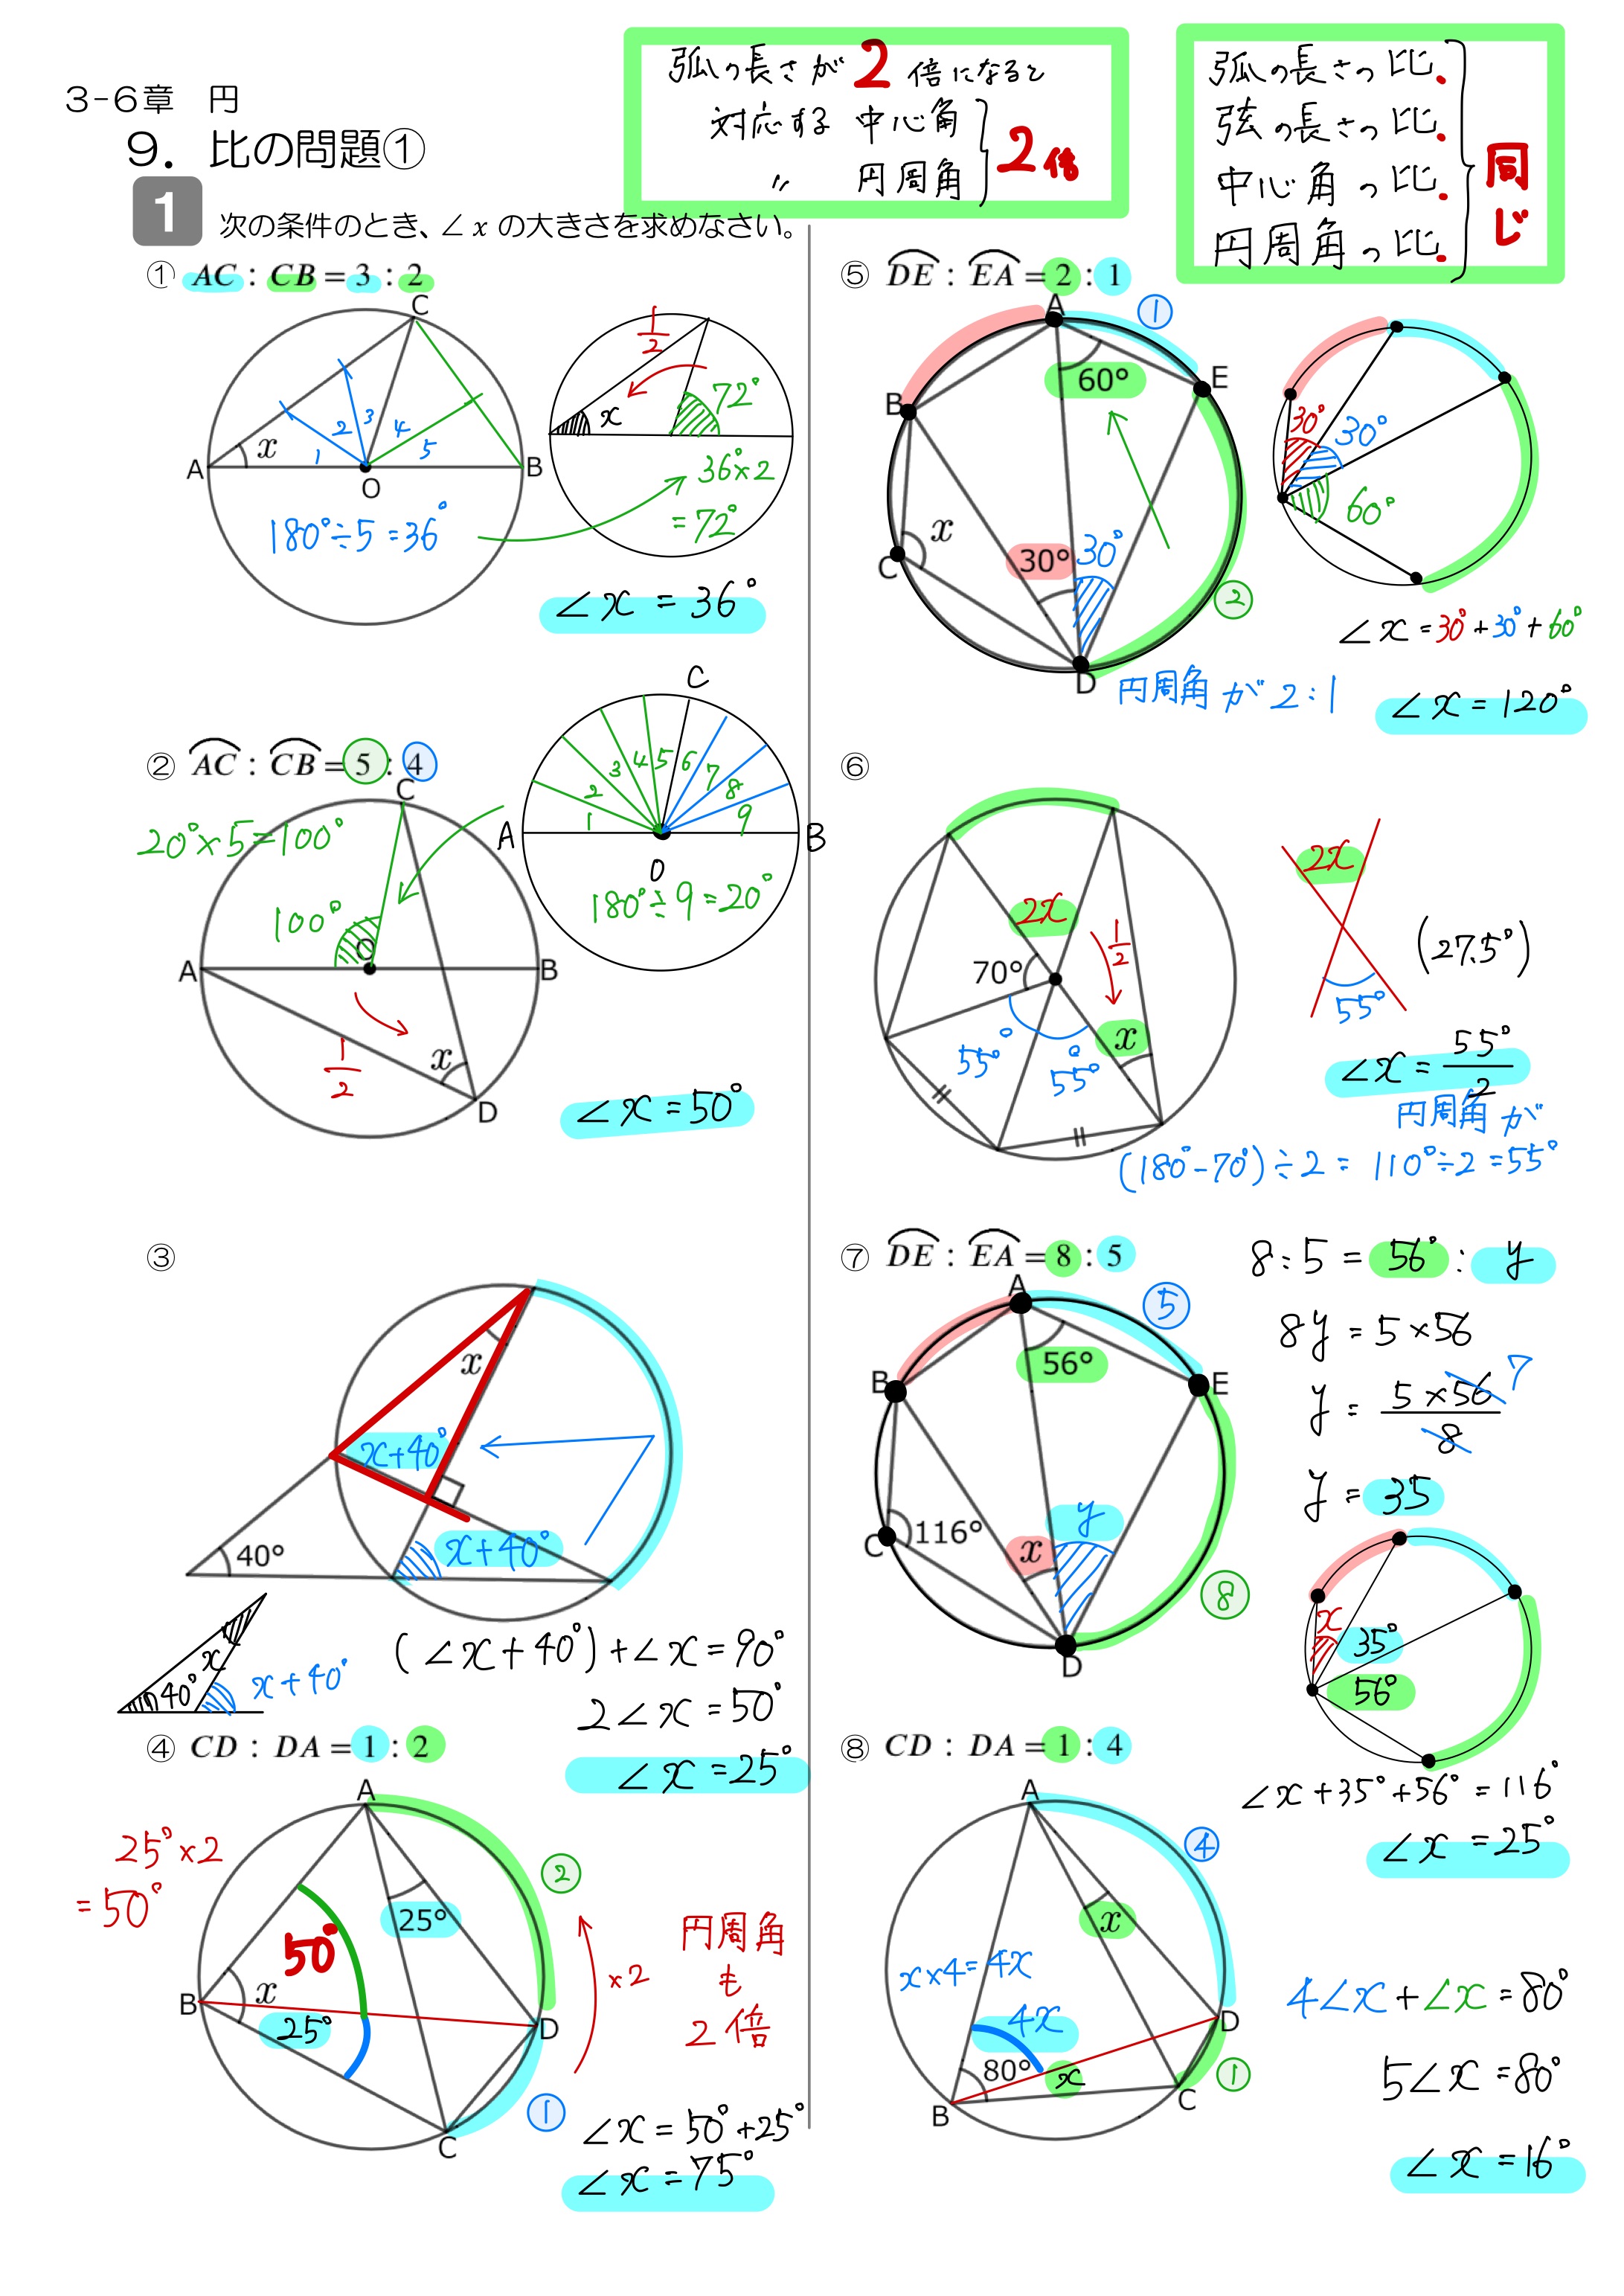 3-6章　円
9. 比の問題①
弧の長さが 2 倍になると
対応する 中心角
〃 円周角
2倍
弧の長さの比.
弦の長さの比.
中心角の比.
円周角の比.
同じ
1 次の条件のとき、∠xの大きさを求めなさい。
① AC : CB = 3 : 2
C
A
B
O
x
1
2
3
4
5
180°÷5=36°
1/2
x
72°
36°×2
=72°
∠x = 36°
② AC : CB = 5 : 4
C
20°×5=100°
100°
O
A
B
1/2
x
D
C
A
B
O
1
2
3
4
5
6
7
8
9
180°÷9=20°
∠x=50°
③
x
x+40°
x+40°
40°
x
40°
x+40°
(∠x+40°)+∠x=90°
2∠x=50°
∠x=25°
④ CD : DA = 1 : 2
A
25°×2
=50°
25°
50°
B
x
25°
D
C
②
①
×2
円周角
も
2倍
∠x=50°+25°
∠x=75°
⑤ DE : EA = 2 : 1
A
①
60°
E
B
C
x
30°
30°
②
D
円周角が2:1
30°
30°
60°
∠x=30°+30°+60°
∠x=120°
⑥
2x
70°
1/2
x
55°
55°
2x
55°
(27.5°)
∠x=55°/2
円周角が
(180°-70°)÷2= 110°÷2=55°
⑦ DE : EA = 8 : 5
A
⑤
56°
E
B
C
116°
x
y
⑧
D
8:5 = 56° : y
8y=5×56
y = 5×56/8
7
y = 35
x
35°
56°
∠x+35°+56°=116°
∠x =25°
⑧ CD : DA = 1 : 4
A
④
x
x×4=4x
4x
80°
x
D
①
B
C
4∠x+∠x=80°
5∠x=80°
∠x=16°